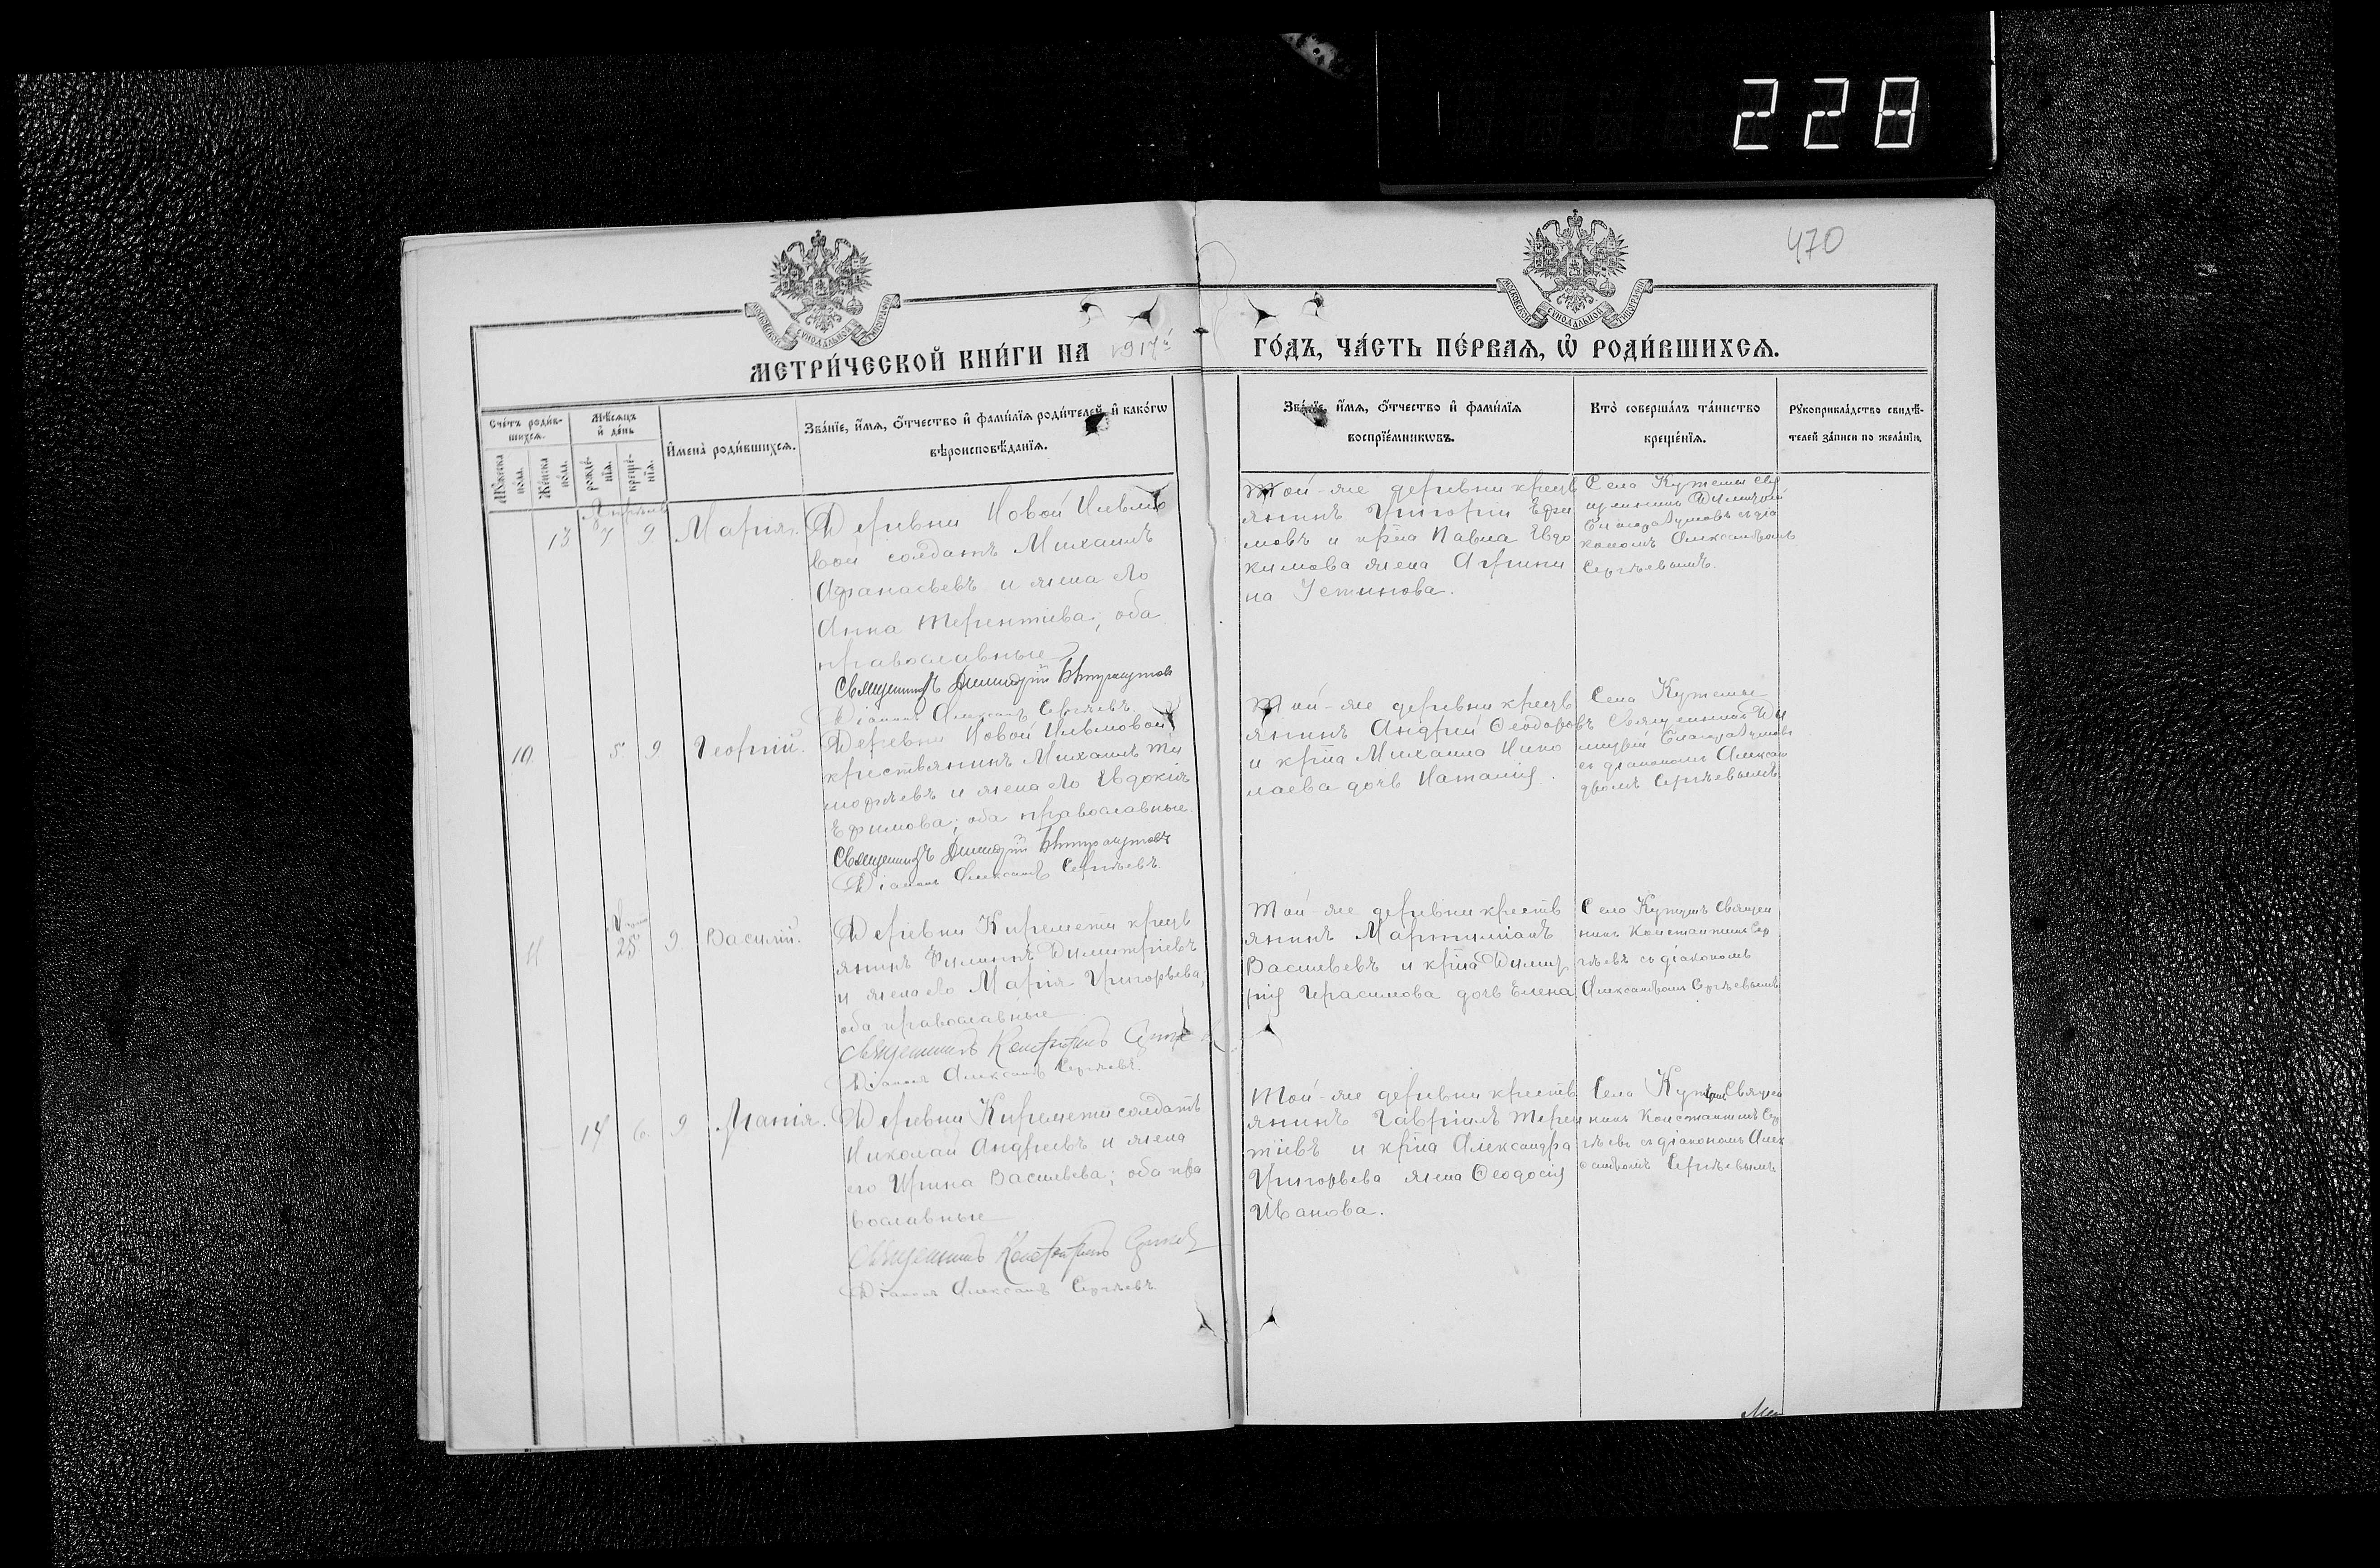 228
470
МОСКОВСКОЙ СѴНОДАЛЬНОЙ ТИПОГРАФІИ
МОСКОВСКОЙ СѴНОДАЛЬНОЙ ТИПОГРАФІИ
МЕТРИ́ЧЕСКОЙ КНИ́ГИ НА 1917й ГО́ДЪ, ЧА́СТЬ ПЕ́РВАЯ, Ѡ РОДИ́ВШИХСЯ.
Сче́тъ роди́в-
шихся.
Му́жеска по́ла.
Же́нска по́ла.
Мѣ́сяцъ
и де́нь
рожде́-
нїя.
креще́-
нїя.
Имена̀ роди́вшихся.
Зва́нїе, и́мя, о́тчество и фами́лїя роди́телей, и како́гѡ
вѣроисповѣ́данїя.
Зва́нїе, и́мя, о́тчество и фами́лїя
воспрїе́мникѡвъ.
Кто̀ соверша́лъ та́инство
креще́нїя.
Рꙋкоприкла́дство свидѣ́-
телей за́писи по жела́нїю.
Апрѣль
13 7 9 Марія.
Деревни Новой Ильмо
вой солдатъ Михаилъ
Афанасьевъ и жена его
Анна Терентіева; оба
православные
Священникъ Димитрій
Діаконъ Александръ Сергѣевъ.
Той-же деревни кресть
янинъ Григорій Ефи
мовъ и крѣна Павла Евдо
кимова жена Агрипи
на Устинова.
Села Кутемы свя
щенникъ Димитрій
съ діа
кономъ Александромъ
Сергѣевымъ.
10. 5. 9. Георгій.
Деревни Новой Ильмовой
крестьянинъ Михаилъ Ти
мофѣевъ и жена его Евдокія
Ефимова; оба православные.
Священникъ Димитрій
Діаконъ Александръ Сергѣевъ.
Той-же деревни кресть
янинъ Андрей Ѳеодоровъ
и крѣна Михаила Нико
лаева дочь Наталія.
Села Кутемы
Священникъ Ди
митрій
съ діакономъ Алексан
дромъ Сергѣевымъ
11 25 9. Василій.
Деревни Киремети кресть
янинъ Филиппъ Димитріевъ
и жена его Марія Григорьева;
оба православные
Священникъ Константинъ
Діаконъ Александръ Сергѣевъ.
Той-же деревни кресть
янинъ
Васильевъ и крѣна Димит
рія Герасимова дочь Елена
Села Священ
никъ Константинъ Сер
гѣевъ съ діакономъ
Александромъ Сергѣевымъ
14 6. 9
Деревни Киремети солдатъ
Николай Андреевъ и жена
его Ирина Васильева; оба пра
вославные
Священникъ Константинъ
Діаконъ Александръ Сергѣевъ.
Той-же деревни кресть
янинъ Гавріилъ Терен
тіевъ и крѣна Александра
Григорьева жена Ѳеодосія
Иванова.
Села Священ
никъ Константинъ Сер
гѣевъ съ діакономъ Алек
сандромъ Сергѣевымъ